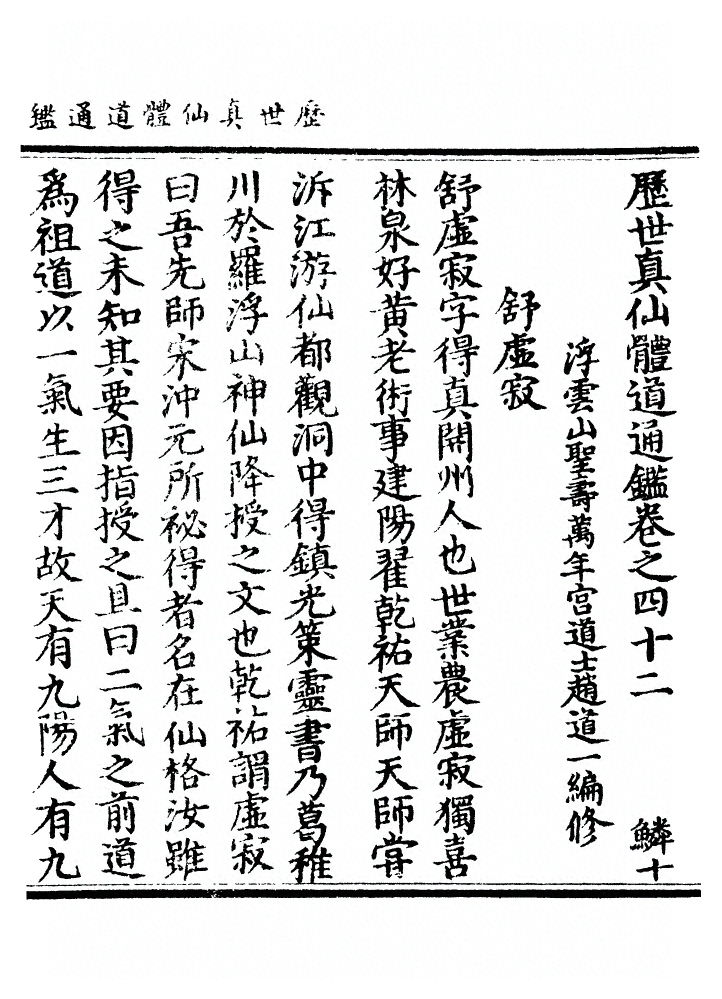 歷世真仙體道通鑑
歷世真仙體道通鑑卷之四十二 鱗十
浮雲山聖壽萬年宫道士趙道一編修
舒虛寂
舒虛寂字得真開州人也世業農虛寂獨喜
林泉好黃老術事建陽翟乾祐天師天師嘗
泝江游仙都觀洞中得鎮光策靈書乃葛稚
川於羅浮山神仙降授之文也乾祐謂虛寂
曰吾先師宋沖元所祕得者名在仙格汝雖
得之未知其要因指授之且曰二氣之前道
為祖道以一氣生三才故天有九陽人有九